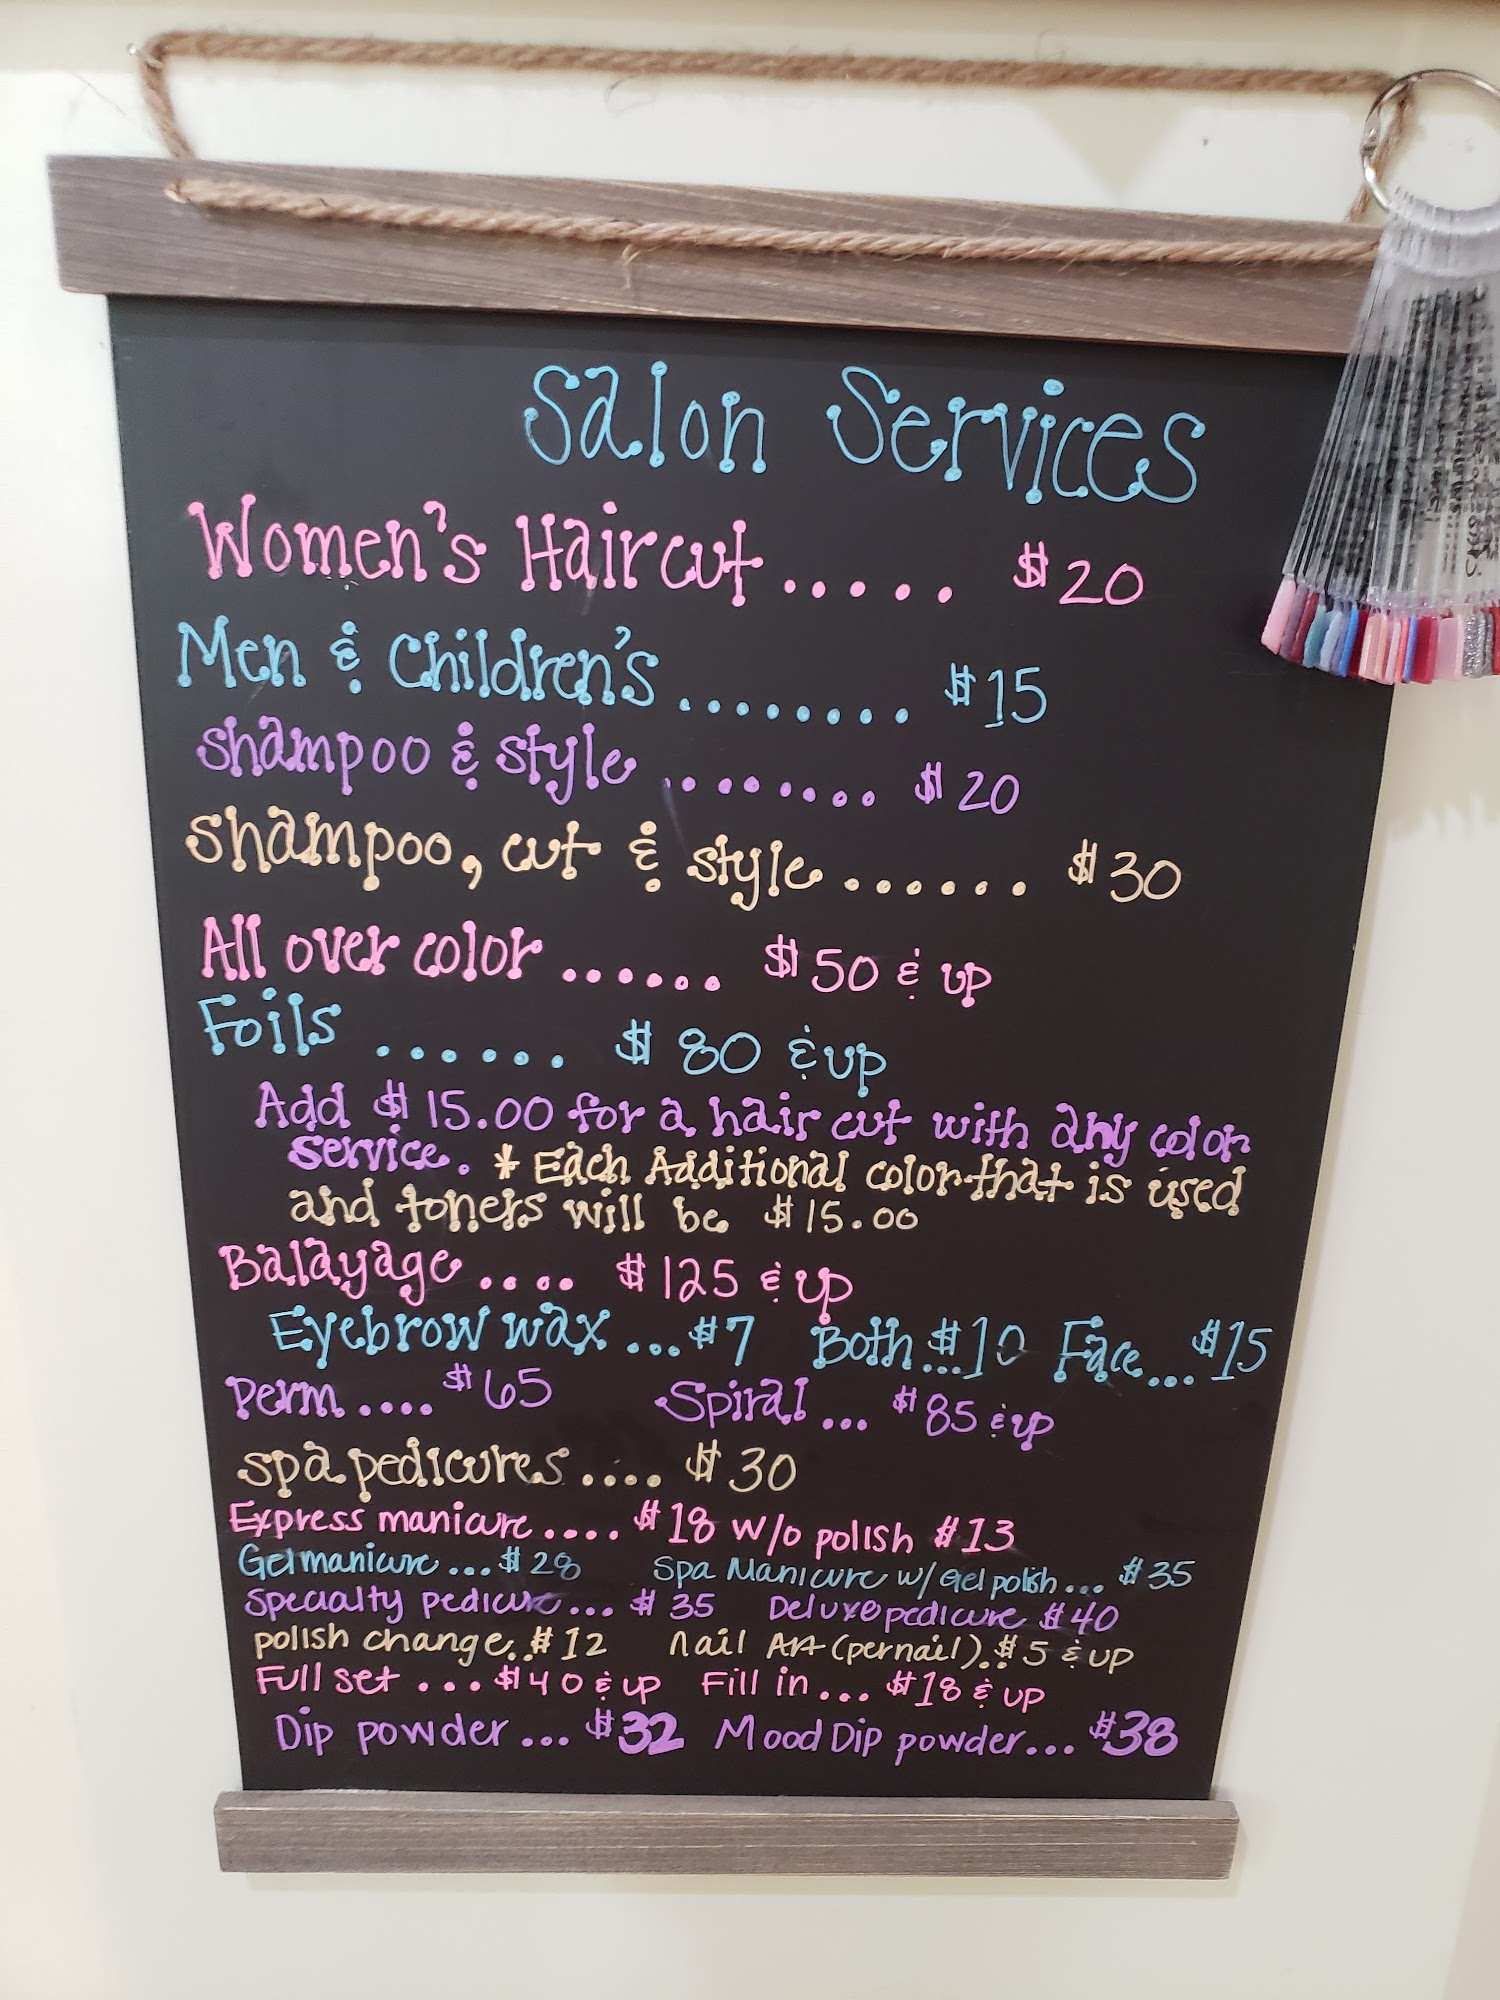 Salon Services
Women's Haircut ..... $20
Men & Children's ........ $15
Shampoo & style ........ $20
Shampoo, cut & style ...... $30
All over color ...... $50 & up
Foils ...... $80 & up
Add $15.00 for a hair cut with any color
service. * Each Additional color that is used
and toners will be $15.00
Balayage .... $125 & up
Eyebrow wax ... $7 Both ... $10 Face ... $15
Perm .... $65 Spiral ... $85 & up
Spa pedicures .... $30
Express manicure .... $18 w/o polish $13
Gel manicure ... $28 Spa Manicure w/ Gel polish ... $35
Specialty pedicure ... $35 Deluxe pedicure $40
polish change .. $12 Nail Art (per nail) .. $5 & up
Full set ... $40 & up Fill in ... $18 & up
Dip powder ... $32 Mood Dip powder ... $38